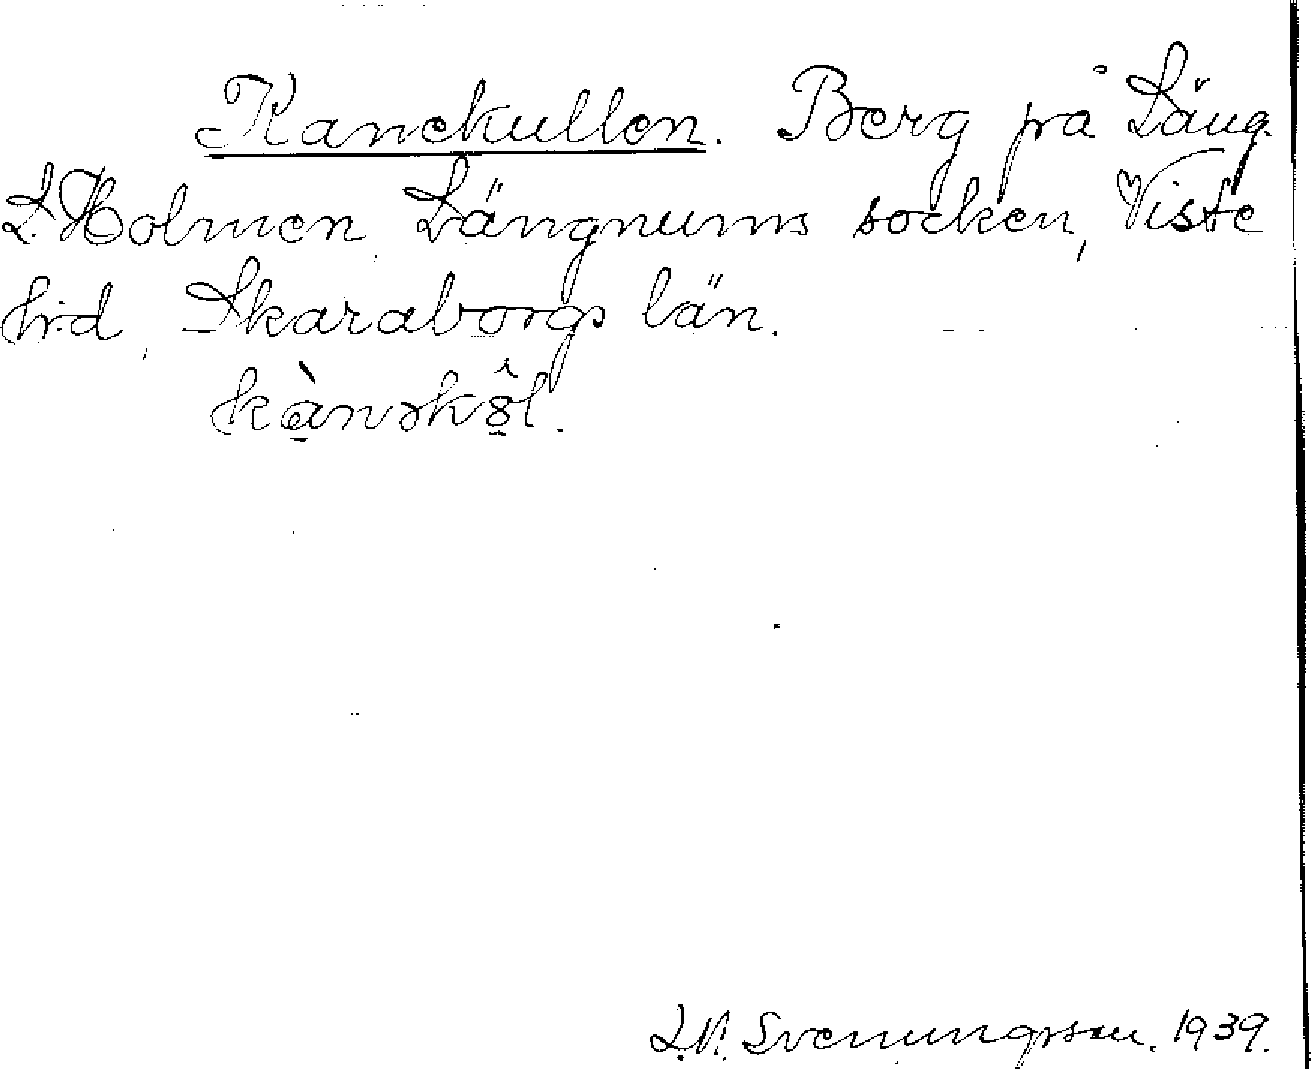 Kanekullen. Berg på Läng.
L. Holmen Längnums socken, Viste
hrd, Skaraborgs län.
kànəkŏ̂l.
L.N. Svenungsson. 1939.